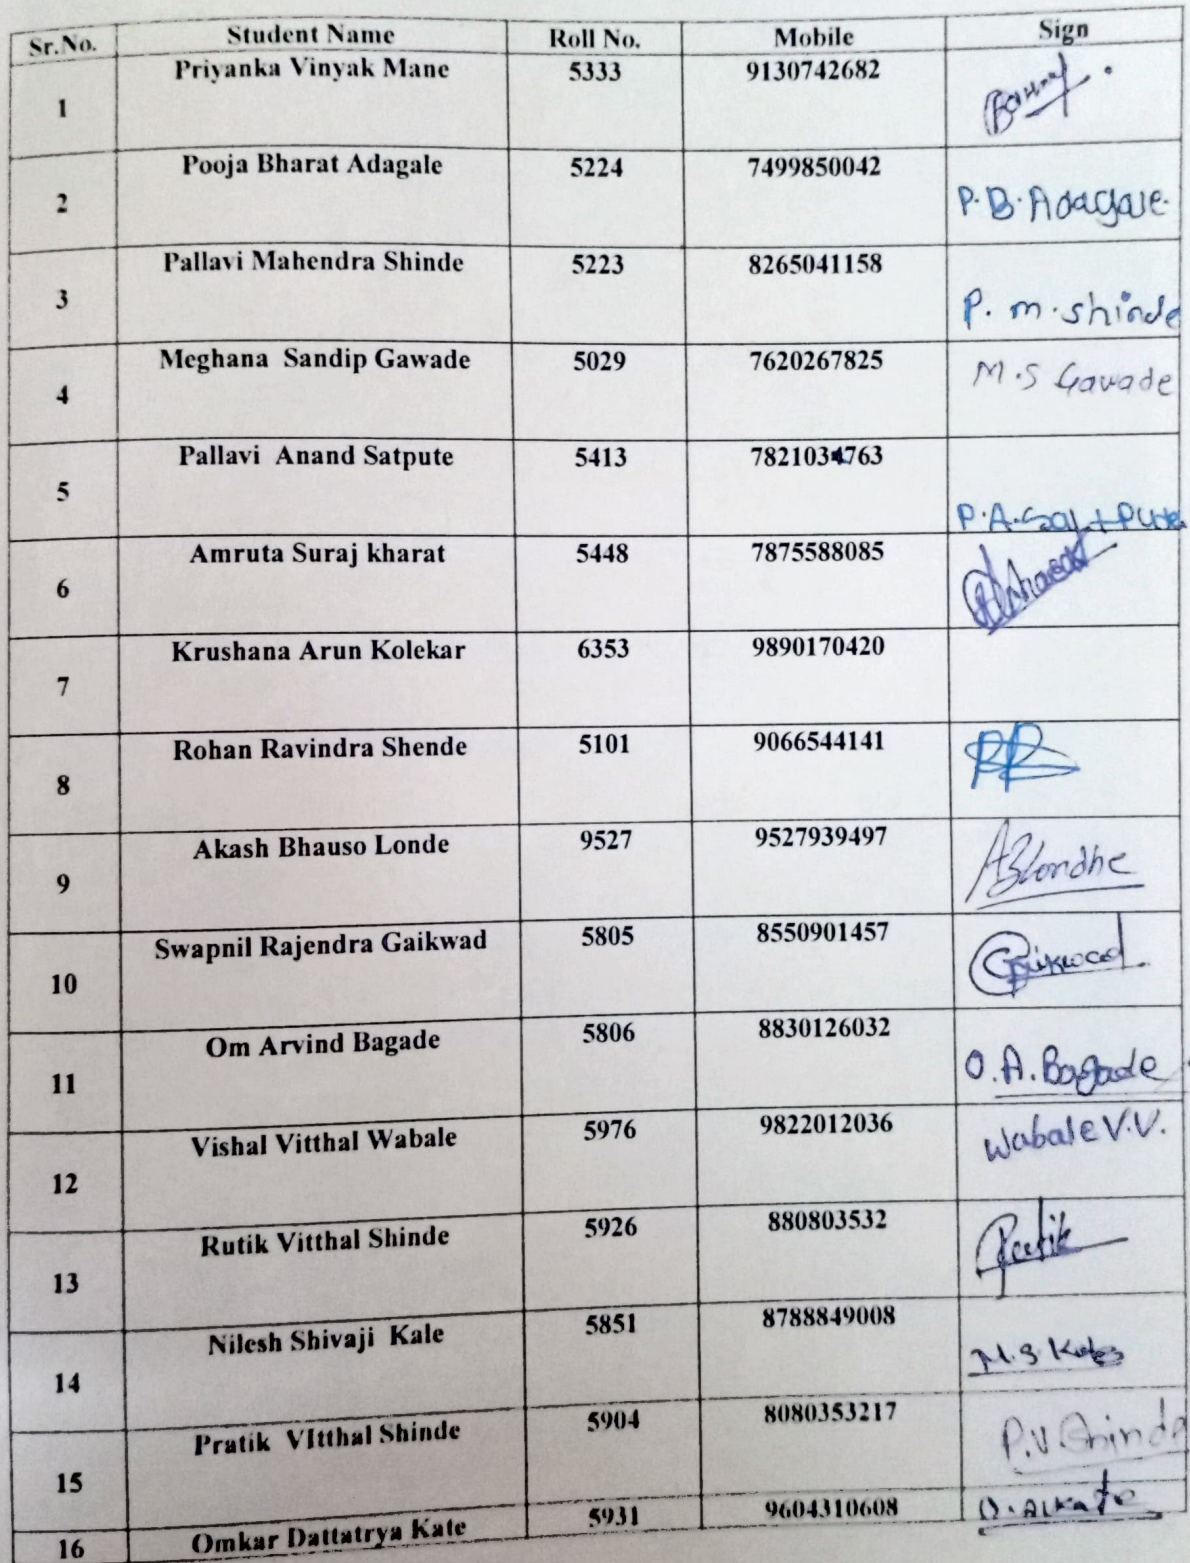 Sr.No. Student Name Roll No. Mobile Sign
1 Priyanka Vinyak Mane 5333 9130742682
2 Pooja Bharat Adagale 5224 7499850042 P.B.Adagale.
3 Pallavi Mahendra Shinde 5223 8265041158 P.m.shinde
4 Meghana Sandip Gawade 5029 7620267825 M.S Gavade
5 Pallavi Anand Satpute 5413 7821034763 P.A.
6 Amruta Suraj kharat 5448 7875588085
7 Krushana Arun Kolekar 6353 9890170420
8 Rohan Ravindra Shende 5101 9066544141
9 Akash Bhauso Londe 9527 9527939497 ABLondhe
10 Swapnil Rajendra Gaikwad 5805 8550901457 Gaikwad
11 Om Arvind Bagade 5806 8830126032 O.A.Bagade
12 Vishal Vitthal Wabale 5976 9822012036 Wabale V.V.
13 Rutik Vitthal Shinde 5926 880803532
14 Nilesh Shivaji Kale 5851 8788849008
15 Pratik VItthal Shinde 5904 8080353217 P.V.Shinde
16 Omkar Dattatrya Kate 5931 9604310608